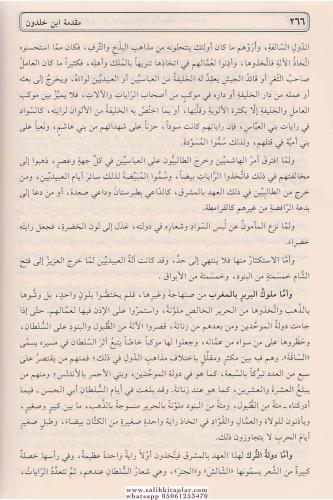 مقدمة ابن خلدون ٢٦٦
الدول السالفة، وأروهم ما كان أولئك ينتحلونه من مذاهب البذخ والترف، فكان مما استحسنوه
اتخاذ الآلة فاتخذوها، وأذنوا لعمّالهم في اتخاذها تنويها بالملك وأهله، فكثيرا ما كان العامل
صاحب الثغر أو قائد الجيش يعقد له الخليفة من العباسيين أو العبيديين لواءه، ويخرج إلى بعثه
أو عمله من دار الخليفة أو داره في موكب من أصحاب الرايات والآلات، فلا يميّز بين موكب
العامل والخليفة إلا بكثرة الألوية وقلّتها، أو بما اختصّ به الخليفة من الألوان لرايته، كالسواد
في رايات بني العبّاس، فإن راياتهم كانت سودا، حزنا على شهدائهم من بني هاشم، ونعيا على
بني أمية في قتلهم، ولذلك سمّوا المسوّدة.
ولمّا افترق أمر الهاشميين وخرج الطالبيون على العباسيين في كل جهة وعصر، ذهبوا إلى
مخالفتهم في ذلك فاتخذوا الرايات بيضا، وسمّوا المبيّضة لذلك سائر أيام العبيديين، ومن
خرج من الطالبيين في ذلك العهد بالمشرق، كالداعي بطبرستان وداعي صعدة، أو من دعا إلى
بدعة الرافضة من غيرهم كالقرامطة.
ولمّا نزع المأمون عن لبس السواد وشعاره في دولته، عدل إلى لون الخضرة، فجعل رايته
خضراء.
وأمّا الاستكثار منها فلا ينتهي إلى حدّ، وقد كانت آلة العبيديين لمّا خرج العزيز إلى فتح
الشام خمسمئة من البنود، وخمسمئة من الأبواق.
وأمّا ملوك البربر بالمغرب من صنهاجة وغيرها، فلم يختصّوا بلون واحد، بل وشّوها
بالذهب واتخذوها من الحرير الخالص ملوّنة، واستمرّوا على الإذن فيها لعمّالهم. حتى إذا
جاءت دولة الموحّدين ومن بعدهم من زناتة، قصروا الآلة من الطبول والبنود على السلطان،
وحظروها على من سواه من عمّاله، وجعلوا لها موكبا خاصّا يتبع أثر السلطان في مسيره يسمى
«الساقة»، وهم فيه بين مكثر ومقلّل باختلاف مذاهب الدول في ذلك؛ فمنهم من يقتصر على
سبع من العدد تبرّكا بالسبعة، كما هو في دولة الموحّدين، وبني الأحمر بالأندلس؛ ومنهم من
يبلغ العشرة والعشرين، كما هو عند زناتة. وقد بلغت في أيام السلطان أبي الحسن ـ فيما
أدركناه ـ مئة من الطبول، ومئة من البنود ملوّنة بالحرير منسوجة بالذهب، ما بين كبير وصغير.
ويأذنون للولاة والعمال والقوّاد في اتخاذ راية واحدة صغيرة من الكتان بيضاء، وطبل صغير
أيام الحرب لا يتجاوزون ذلك.
وأمّا دولة الترك لهذا العهد بالمشرق فيتخذون أولا راية واحدة عظيمة، وفي رأسها خصلة
كبيرة من الشعر يسمّونها «الشالش» و«الجتر»، وهي شعار السلطان عندهم، ثم تتعدّد الرايات،
www.salihkitaplar.com
whatsapp 05061253470